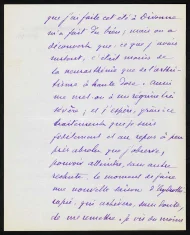 que j'ai faite cet été à Divonne
m'a fait du bien; mais on a
découvert que ce que j'avais
surtout, c'était moins de
la neurasthénie que de l'arthri-
tisme à haute dose. Aussi
me met-on à un régime très
sévère; et j'espère, grâce à ce
traitement que je suis
forcément et au repos à peu
près absolu que j'observe,
pouvoir atteindre, sans autre
rechute, le moment de faire
une nouvelle saison d'hydrothé-
rapie, qui achèvera, sans doute,
de me remettre. Je vis du moins